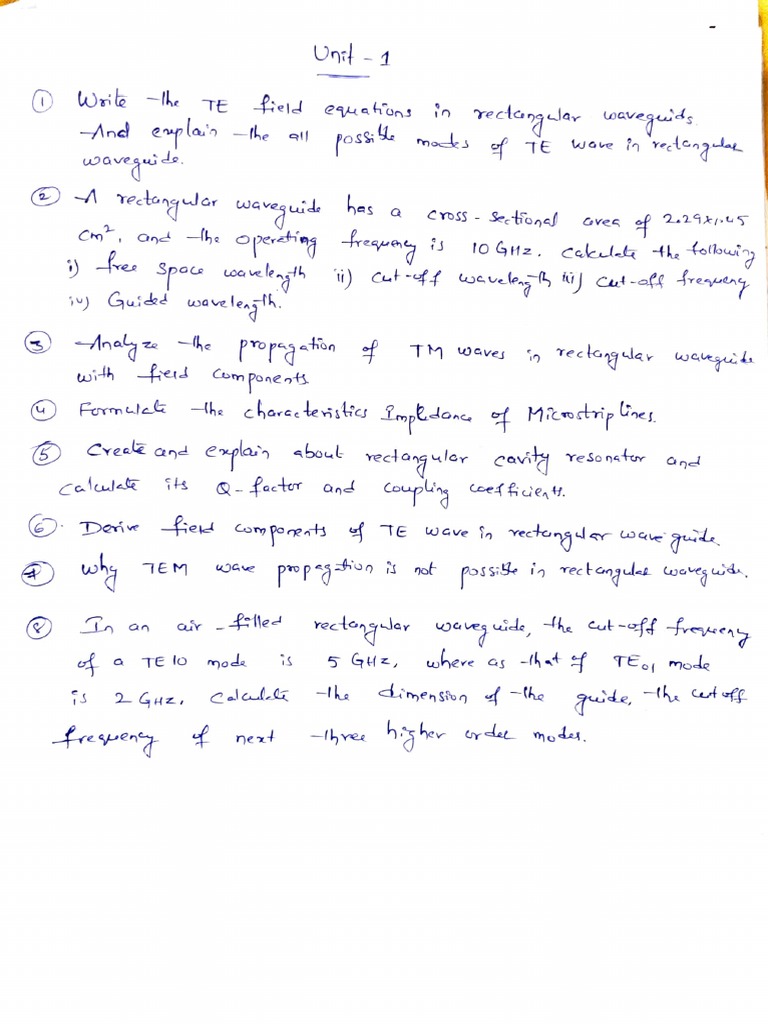 Unit - 1
① Write the TE field equations in rectangular waveguids.
And explain the all possible modes of TE wave in rectangular
waveguide.
② A rectangular waveguide has a cross-sectional area of 2.29x1.45
cm², and the operating frequency is 10 GHz. calculate the following
i) free space wavelength ii) cut-off wavelength iii) cut-off frequency
iv) Guided wavelength.
③ Analyze the propagation of TM waves in rectangular waveguide
with field components
④ Formulate the characteristics Impedance of Microstrip lines.
⑤ Create and explain about rectangular cavity resonator and
calculate its Q-factor and coupling coefficients.
⑥. Derive field components of TE wave in rectangular wave guide.
⑦ Why TEM wave propagation is not possible in rectangular waveguide.
⑧ In an air-filled rectangular waveguide, the cut-off frequency
of a TE10 mode is 5 GHz, where as that of TE01 mode
is 2 GHz. Calculate the dimension of the guide, the cut off
frequency of next three higher order modes.